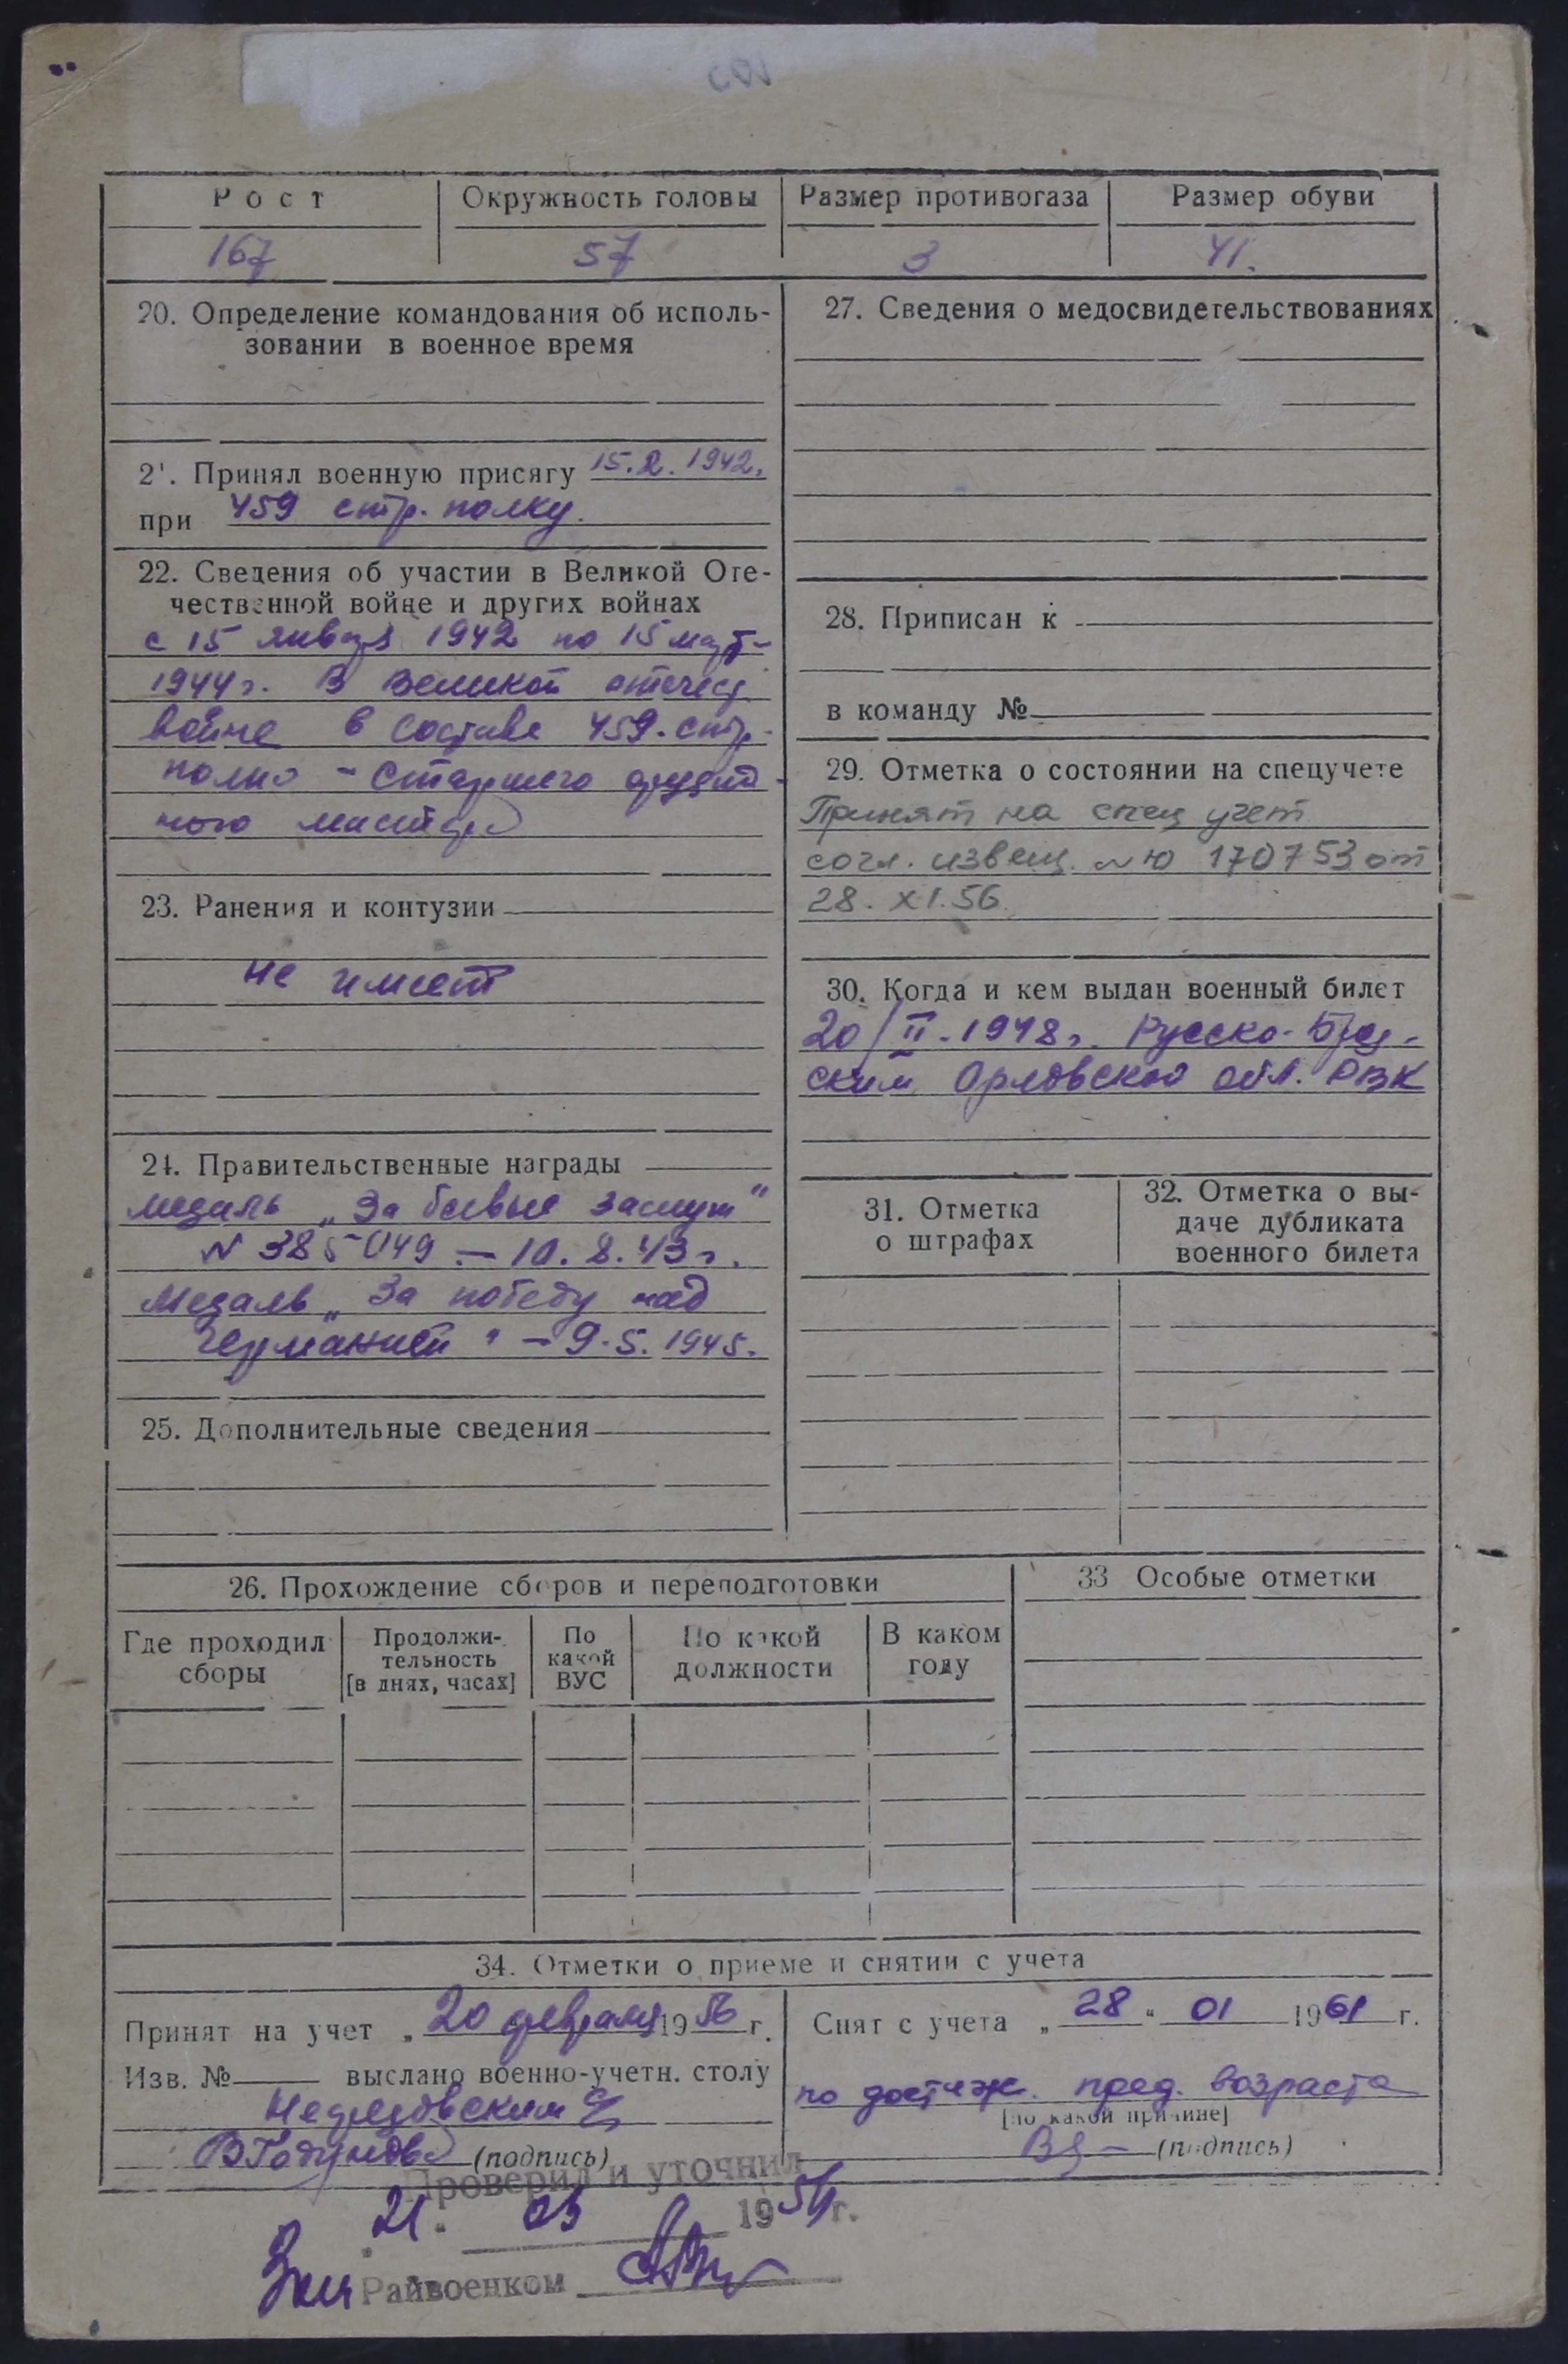 Рост
Окружность головы
Размер противогаза
Размер обуви
167
57
3
41.
20. Определение командования об исполь-
зовании в военное время
21. Принял военную присягу 15.2.1942.
при 459 стр. полку.
22. Сведения об участии в Великой Оте-
чественной войне и других войнах
с 15 января 1942 по 15 март
1944 г. В Великой отечест
войне в составе 459. стр.
полка - старшего орудий-
ного мастера
23. Ранения и контузии
не имеет
24. Правительственные награды
медаль „За боевые заслуги"
N 385049 – 10.8.43 г.
Медаль „За победу над
Германией" – 9.5.1945.
25. Дополнительные сведения
27. Сведения о медосвидетельствованиях
28. Приписан к
в команду №
29. Отметка о состоянии на спецучете
Принят на спец учет
согл. извещ. 170753 от
28.XI.56.
30. Когда и кем выдан военный билет
20/II-1948 г. Русско-Брод-
ским Орловской обл. РВК
31. Отметка
о штрафах
32. Отметка о вы-
даче дубликата
военного билета
26. Прохождение сборов и переподготовки
Где проходил
сборы
Продолжи-
тельность
[в днях, часах]
По
какой
ВУС
По какой
должности
В каком
году
33 Особые отметки
34. Отметки о приеме и снятии с учета
Принят на учет „ 20 февраля 1956 г.
Изв. № выслано военно-учетн. столу
(подпись)
Снят с учета „ 28 " 01 1961 г.
по достиж. пред. возраста
[по какой причине]
(подпись)
Проверил и уточнил
21. 03 195 г.
Райвоенком